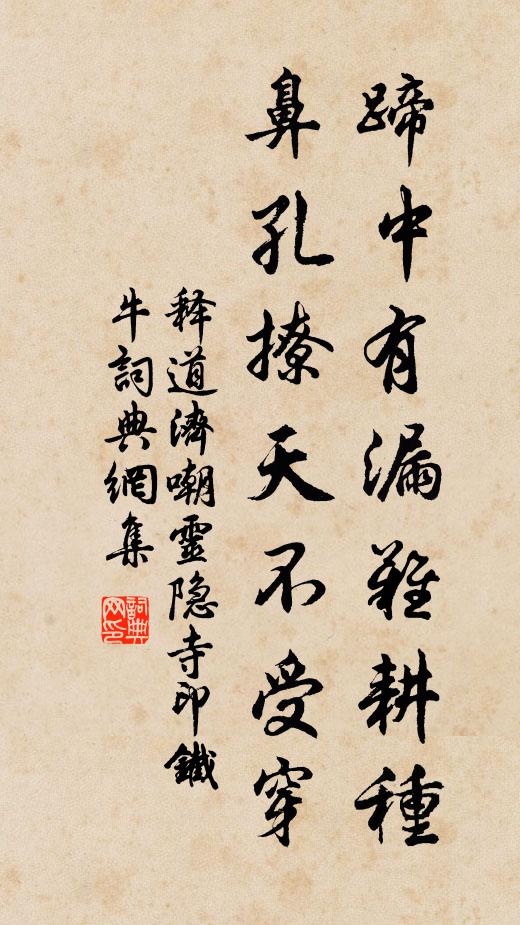 蹄中有漏難耕種
鼻孔撩天不受穿
释道濟嘲靈隐寺印鐵
牛詞典網集
詞典网印